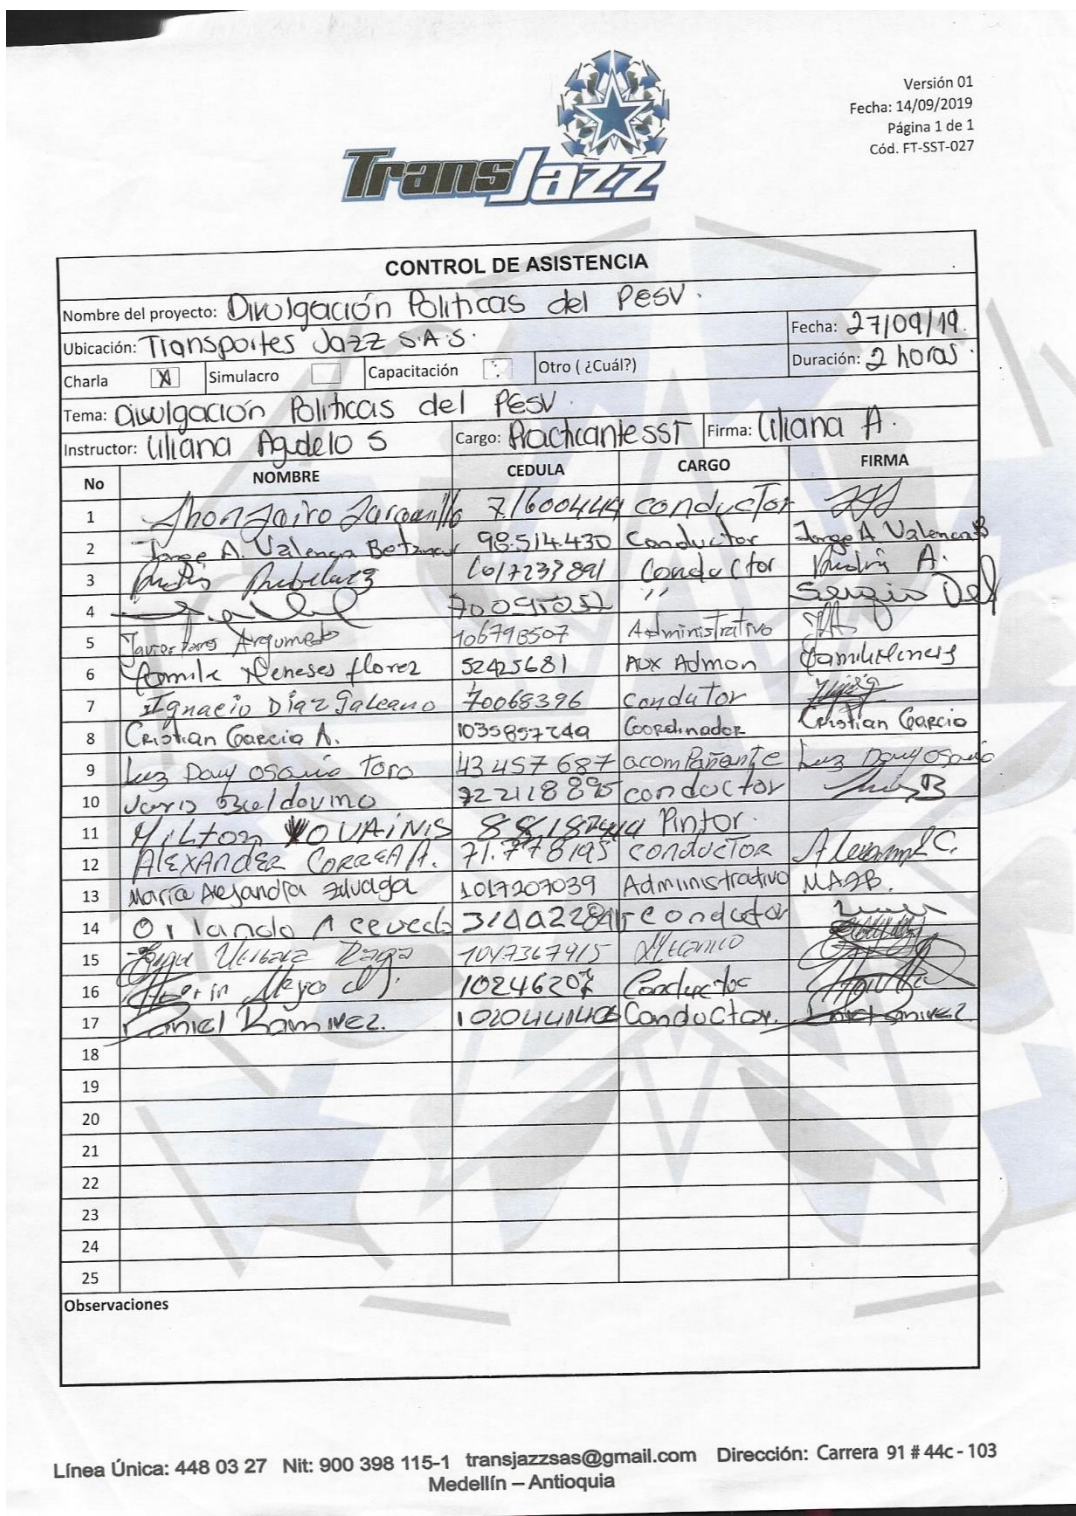 Trans Jazz
Versión 01
Fecha: 14/09/2019
Página 1 de 1
Cód. FT-SST-027
CONTROL DE ASISTENCIA
Nombre del proyecto: Divulgación Politicas del PESV.
Ubicación: Transportes Jazz S.A.S. Fecha: 27/09/19.
Charla X Simulacro Capacitación Otro ( ¿Cuál?) Duración: 2 horas.
Tema: Divulgación Politicas del PESV.
Instructor: Liliana Agudelo S Cargo: Practicante SST Firma: Liliana A.
No NOMBRE CEDULA CARGO FIRMA
1 Jhon Jairo Jaramillo 71600444 conductor
2 Jorge A. Valencia Betancur 98.514.430 Conductor Jorge A Valencia B
3 1017233891 Conductor A.
4 70095052 " Sergio Del
5 Javier Argumedo Administrativo
6 Yamile Meneses florez 52425681 Aux Admon Yamile Meneses
7 Ignacio Díaz Galeano 70068396 condutor
8 Cristian Garcia A. 1035857249 Coordinador Cristian Garcia
9 Luz Dary osorio Toro 43457687 acompañante Luz Dary osorio
10 conductor
11 Milton Pintor.
12 ALEXANDER CORREA A. 71.778195 conductor
13 Maria Alejandra Zuluaga 1017207039 Administrativo MAZB.
14 Orlando Acevedo conductor
15 1047367915 Mecanico
16 10246207 Conductor
17 Daniel Ramirez. Conductor. Daniel Ramirez.
18
19
20
21
22
23
24
25
Observaciones
Línea Única: 448 03 27 Nit: 900 398 115-1 transjazzsas@gmail.com Dirección: Carrera 91 # 44c - 103
Medellín – Antioquia